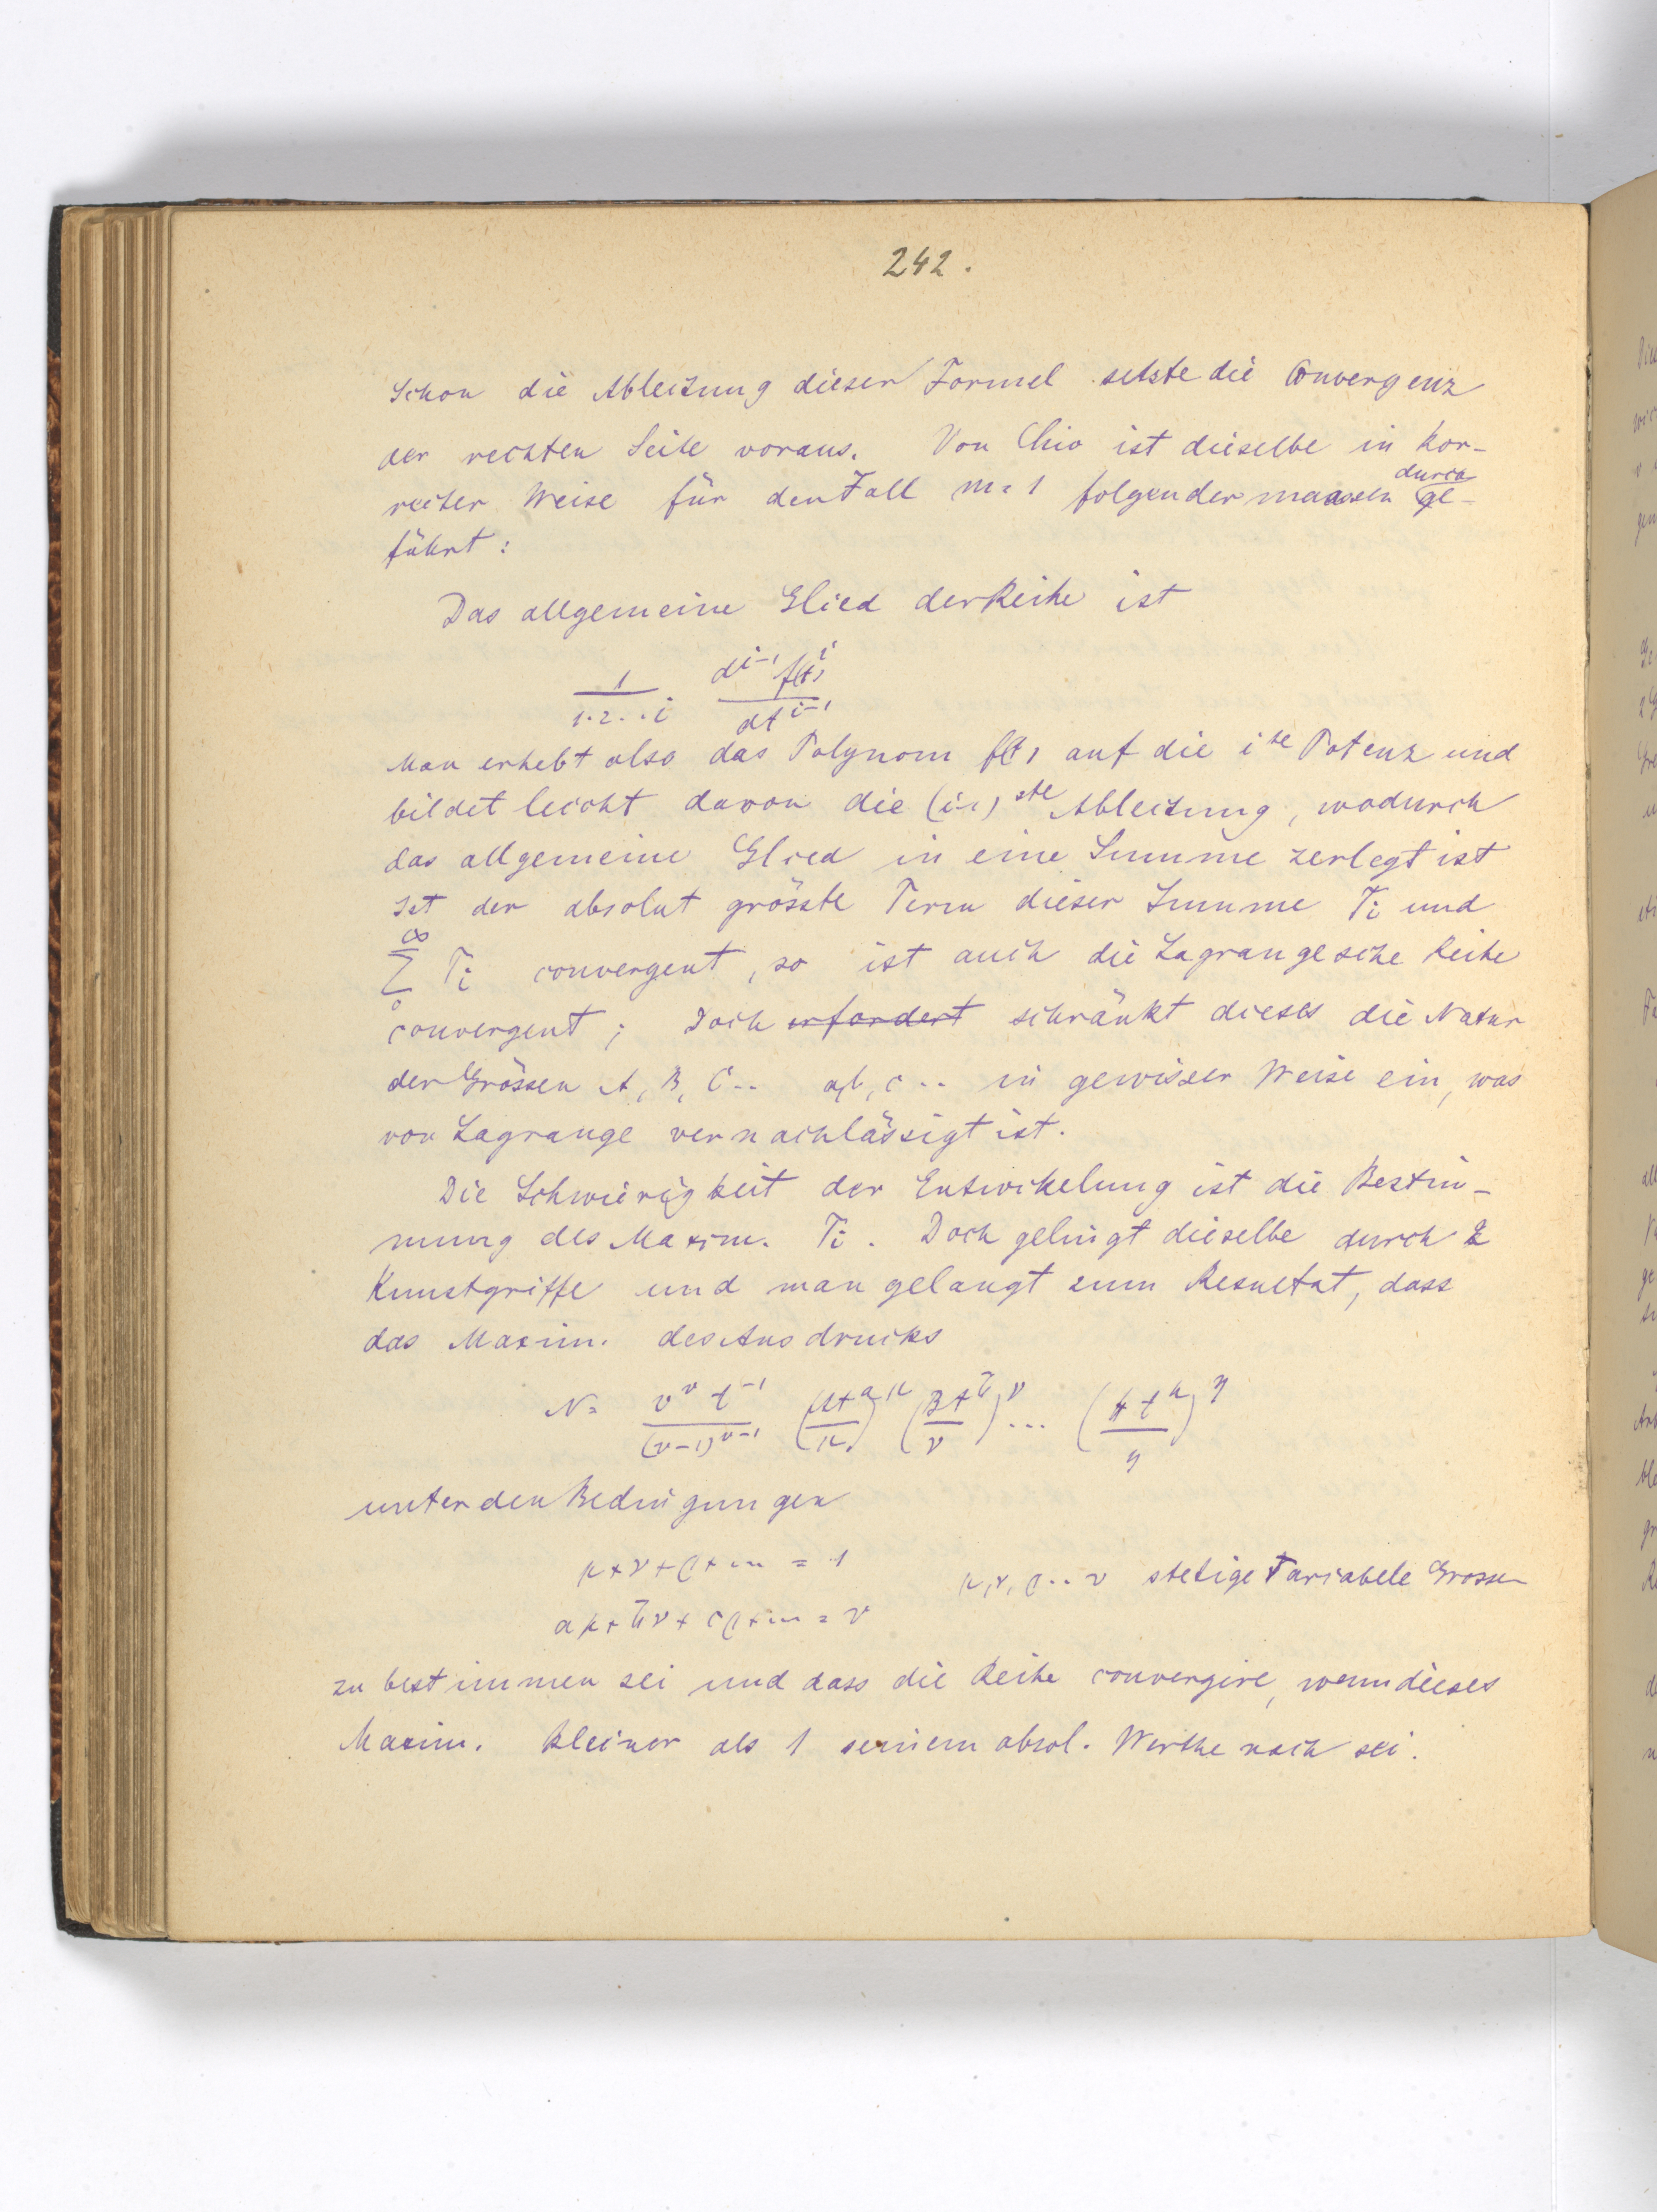 242.
Schon die Ableitung dieser Formel setzte die Convergenz
der rechten Seite voraus. Von Chio ist dieselbe in kor-
recter Weise für den Fall m=1 folgendermaassen durchge-
führt:
Das allgemeine Glied der Reihe ist
1/(1·2··i) d^{i-1} f(t)^i / dt^{i-1}
Man erhebt also das Polynom f(t) auf die i^{te} Potenz und
bildet leicht davon die (i-1)^{ste} Ableitung, wodurch
das allgemeine Glied in eine Summe zerlegt ist
Ist der absolut grösste Term dieser Summe T_i und
∑_0^∞ T_i convergent, so ist auch die Lagrangesche Reihe
convergent; Doch erfordert schränkt dieses die Natur
der Grössen A, B, C.. a, b, c.. in gewisser Weise ein, was
von Lagrange vernachlässigt ist.
Die Schwierigkeit der Entwickelung ist die Bestim-
mung des Maxim. T_i. Doch gelingt dieselbe durch 2
Kunstgriffe und man gelangt zum Resultat, dass
das Maxim. des Ausdrucks
N = v^v t^{-1} / (v-1)^{v-1} (At^a/μ)^μ (Bt^b/ν)^ν ... (Ht^h/η)^η
unter den Bedingungen
μ+ν+ρ+... = 1
μ, ν, ρ.. v stetige variabele Grossen
aμ+bν+cρ+... = v
zu bestimmen sei und dass die Reihe convergire, wenn dieses
Maxim. kleiner als 1 seinem absol. Werthe nach sei.